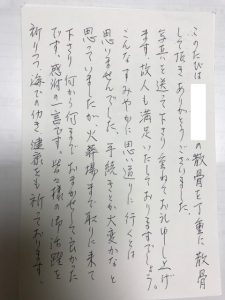 このたびは の散骨を丁重に散骨
して頂きありがとうございました。
写真を送って下さり重ねてお礼申し上げ
ます。故人も満足いたしておりますでしょう。
こんなすみやかに思い通りに行くとは
思いませんでした。手続きとか大変かなと
思っていましたが火葬場まで取りに来て
下さり何から何までおまかせして良かった
です。感謝の一言です。皆々様の御活躍を
祈りつつ海での働き健康をも祈っております。